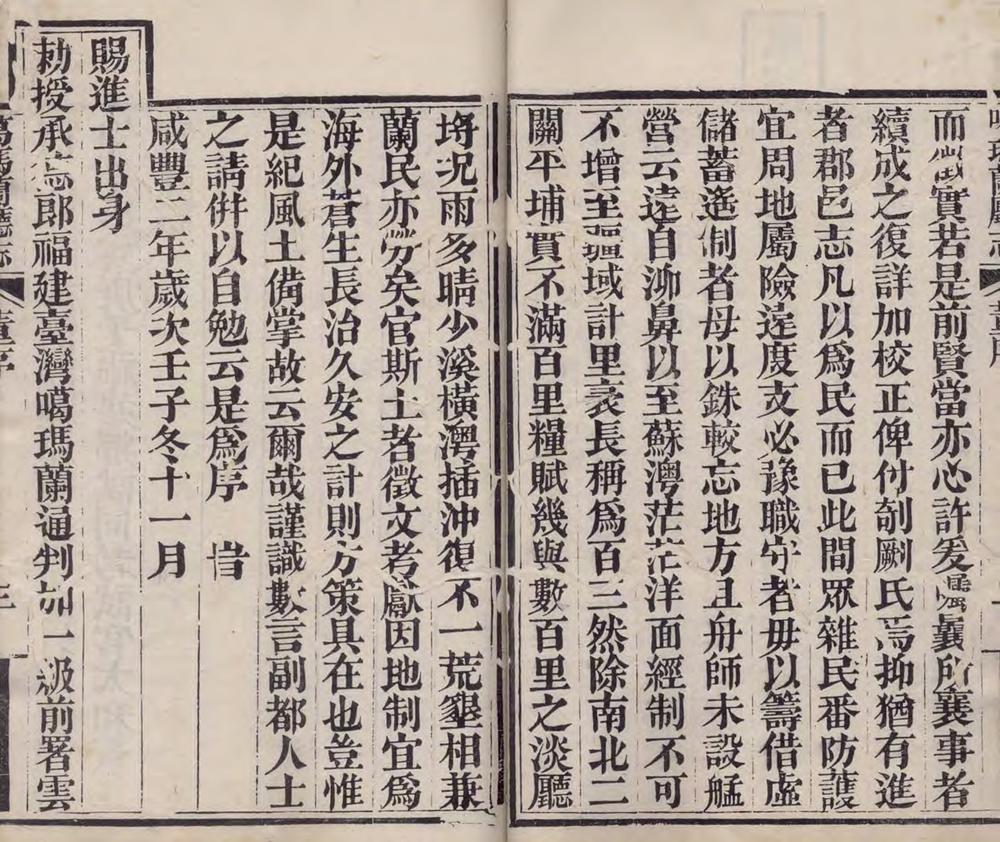 而徵實若是前賢當亦心許爰囑曩所襄事者
續成之復詳加校正俾付剞劂氏焉抑猶有進
者郡邑志凡以爲民而已此間眾雜民番防護
宜周地屬險遠度支必豫職守者毋以籌借虛
儲蓄遙制者母以銖較忘地方且舟師未設艋
營云遠自泖鼻以至蘇澳茫茫洋面經制不可
不增至疆域計里袤長稱爲百三然除南北二
關平埔實不滿百里糧賦幾與數百里之淡廳
埓況雨多晴少溪橫澳插沖復不一荒墾相兼
蘭民亦勞矣官斯土者徵文考獻因地制宜爲
海外蒼生長治久安之計則方策具在也豈惟
是紀風土備掌故云爾哉謹識數言副都人士
之請倂以自勉云是爲序 旹
咸豐二年歲次壬子冬十一月
賜進士出身
勑授承德郎福建臺灣噶瑪蘭通判加一級前署雲
噶瑪蘭廳志 董序